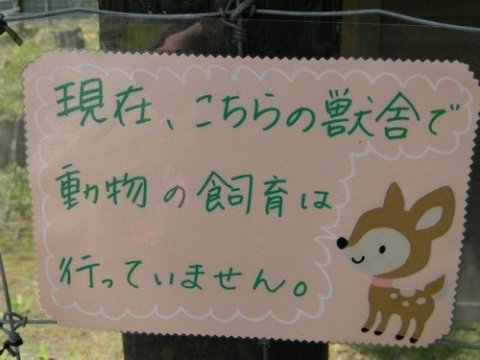 現在、こちらの獣舎で
動物の飼育は
行っていません。